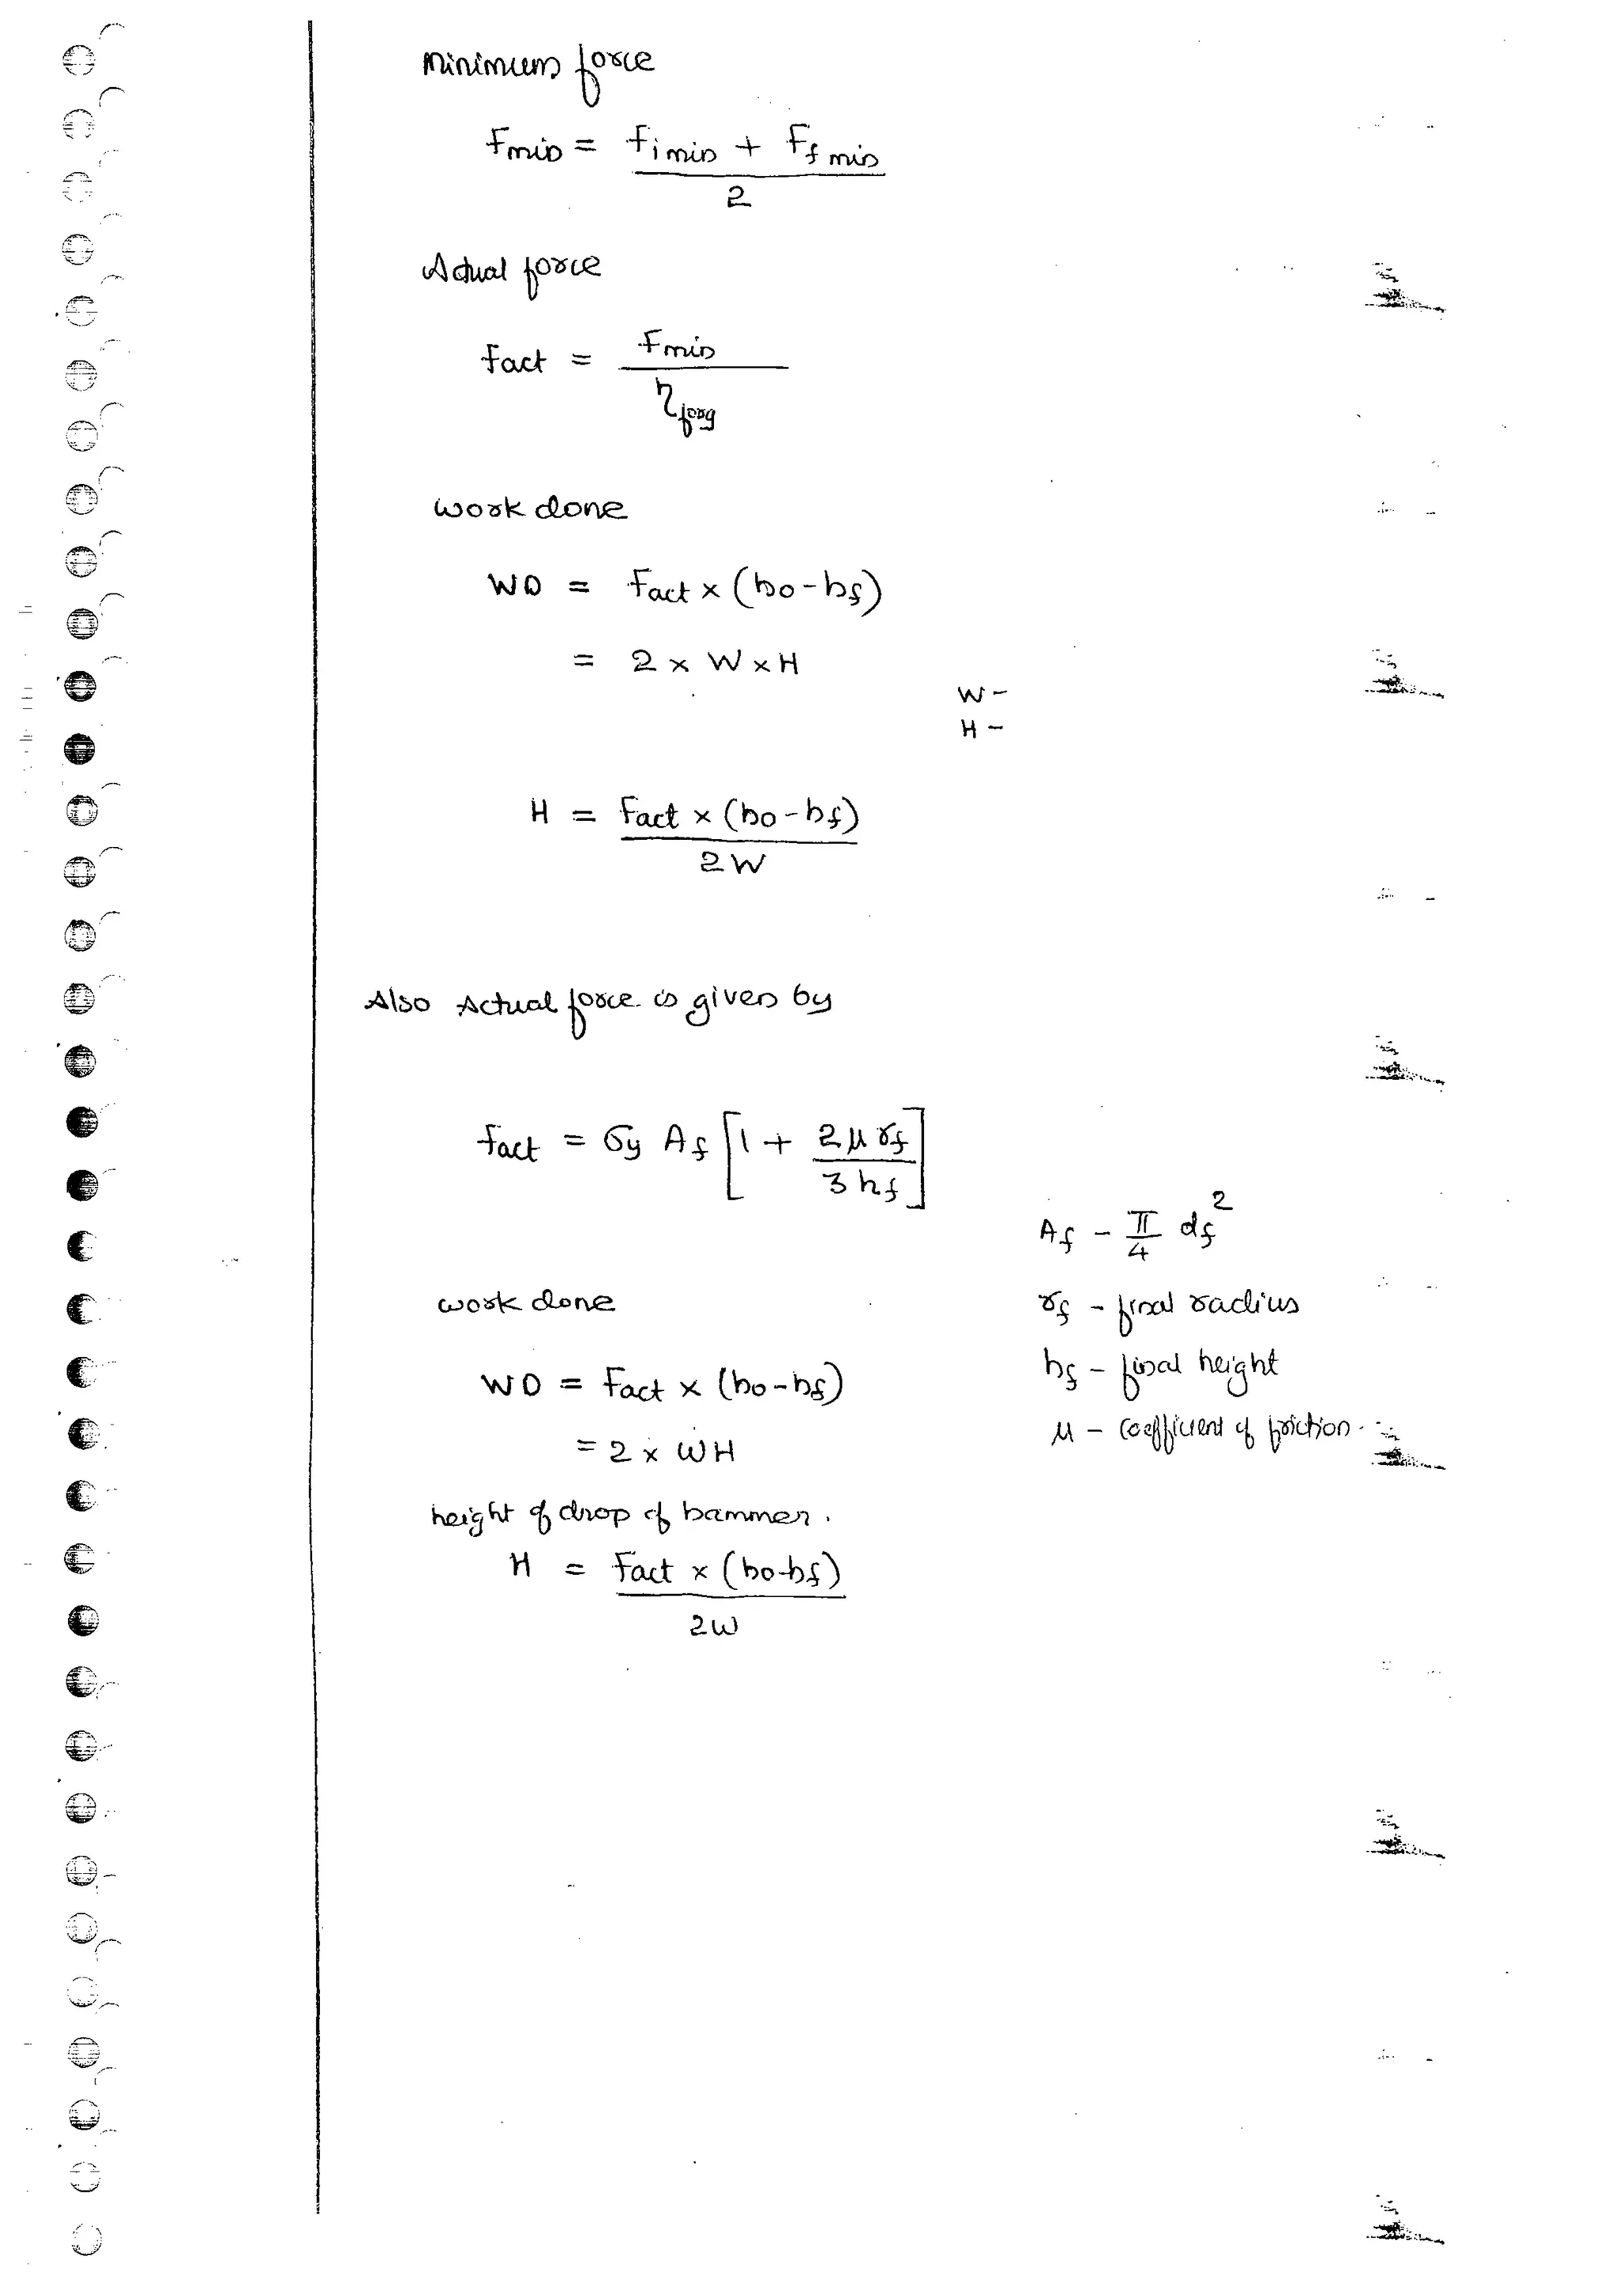 Minimum force
Fmin = Fi min + Ff min
2
Actual force
Fact = Fmin
η forg
work done
WD = Fact × (ho - hf)
= 2 × W × H
W -
H -
H = Fact × (ho - hf)
2W
Also Actual force is given by
Fact = σy Af [1 + 2 μ rf
3 hf]
Af - π/4 df²
work done
rf - final radius
WD = Fact × (ho - hf)
hf - final height
= 2 × WH
μ - coefficient of friction.
height of drop of hammer.
H = Fact × (ho-hf)
2W